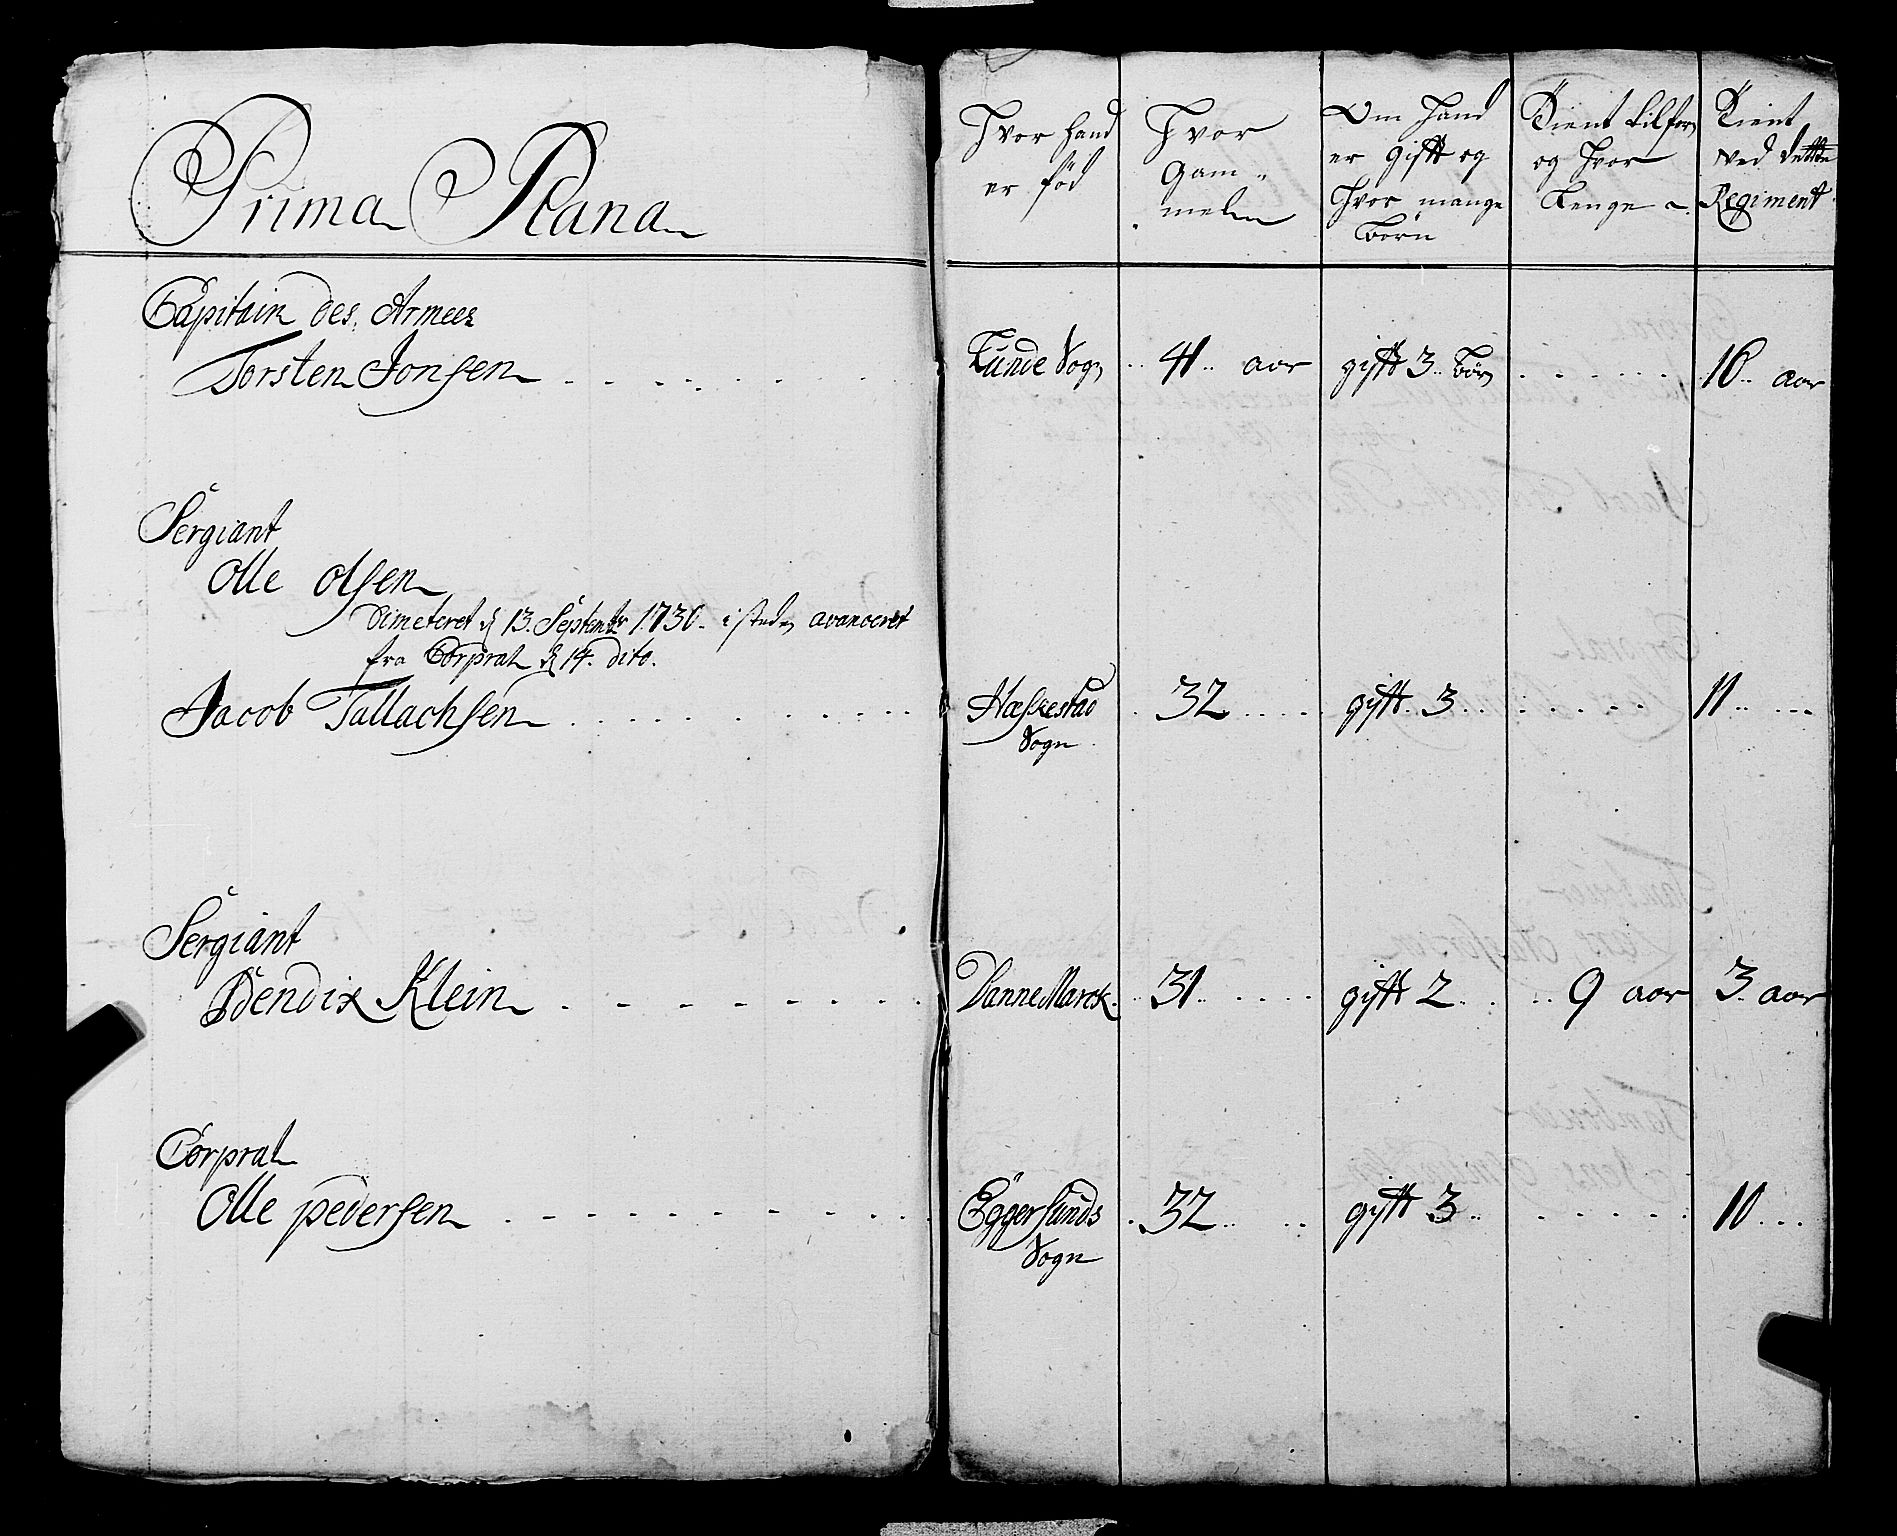 Prima Plana
Hvor hand
er fød
Hvor
Gam-
mel
Om hand
er gifft og
Hvor mange
Børn
Tient tilforn
og Hvor
Lenge
Tient
ved dette
Regiment
Capitain des Armees
Torsten Jonsen
Lunde Sogn 41 aar gifft 3 Børn 16 aar
Sergiant
Olle Olsen
Dimeteret d 13. Septembr 1730. i steden avanceret
fra Corpral d 14. dito.
Jacob Tallachsen
Hæskestad 32 gifft 3 11
Sogn
Sergiant
Bendix Klein
DanneMarck 31 gifft 2 9 aar 3 aar
Corpral
Olle Pedersen
Eggersunds 32 gifft 3 10
Sogn